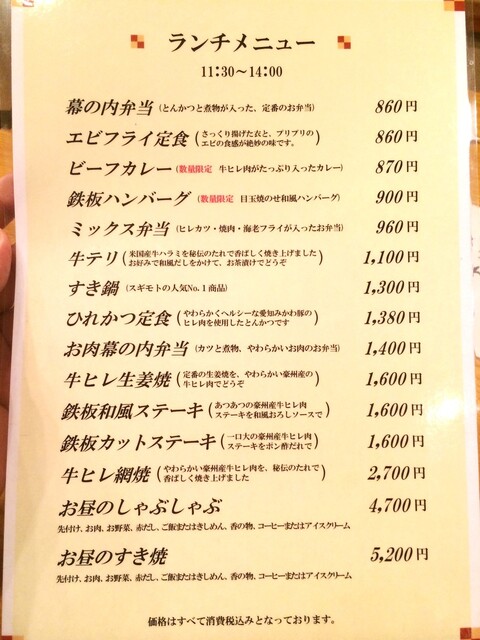 ランチメニュー
11:30～14:00
幕の内弁当 (とんかつと煮物が入った、定番のお弁当) 860円
エビフライ定食 (さっくり揚げた衣と、プリプリの
エビの食感が絶妙の味です。) 860円
ビーフカレー (数量限定 牛ヒレ肉がたっぷり入ったカレー) 870円
鉄板ハンバーグ (数量限定 目玉焼のせ和風ハンバーグ) 900円
ミックス弁当 (ヒレカツ・焼肉・海老フライが入ったお弁当) 960円
牛テリ (米国産牛ハラミを秘伝のたれで香ばしく焼き上げました
お好みで和風だしをかけて、お茶漬けでどうぞ) 1,100円
すき鍋 (スギモトの人気No.1商品) 1,300円
ひれかつ定食 (やわらかくヘルシーな愛知みかわ豚の
ヒレ肉を使用したとんかつです) 1,380円
お肉幕の内弁当 (カツと煮物、やわらかいお肉のお弁当) 1,400円
牛ヒレ生姜焼 (定番の生姜焼を、やわらかい豪州産の
牛ヒレ肉でどうぞ) 1,600円
鉄板和風ステーキ (あつあつの豪州産牛ヒレ肉
ステーキを和風おろしソースで) 1,600円
鉄板カットステーキ (一口大の豪州産牛ヒレ肉
ステーキをポン酢だれで) 1,600円
牛ヒレ網焼 (やわらかい豪州産牛ヒレ肉を、秘伝のたれで
香ばしく焼き上げました) 2,700円
お昼のしゃぶしゃぶ 4,700円
先付け、お肉、お野菜、赤だし、ご飯またはきしめん、香の物、コーヒーまたはアイスクリーム
お昼のすき焼 5,200円
先付け、お肉、お野菜、赤だし、ご飯またはきしめん、香の物、コーヒーまたはアイスクリーム
価格はすべて消費税込みとなっております。